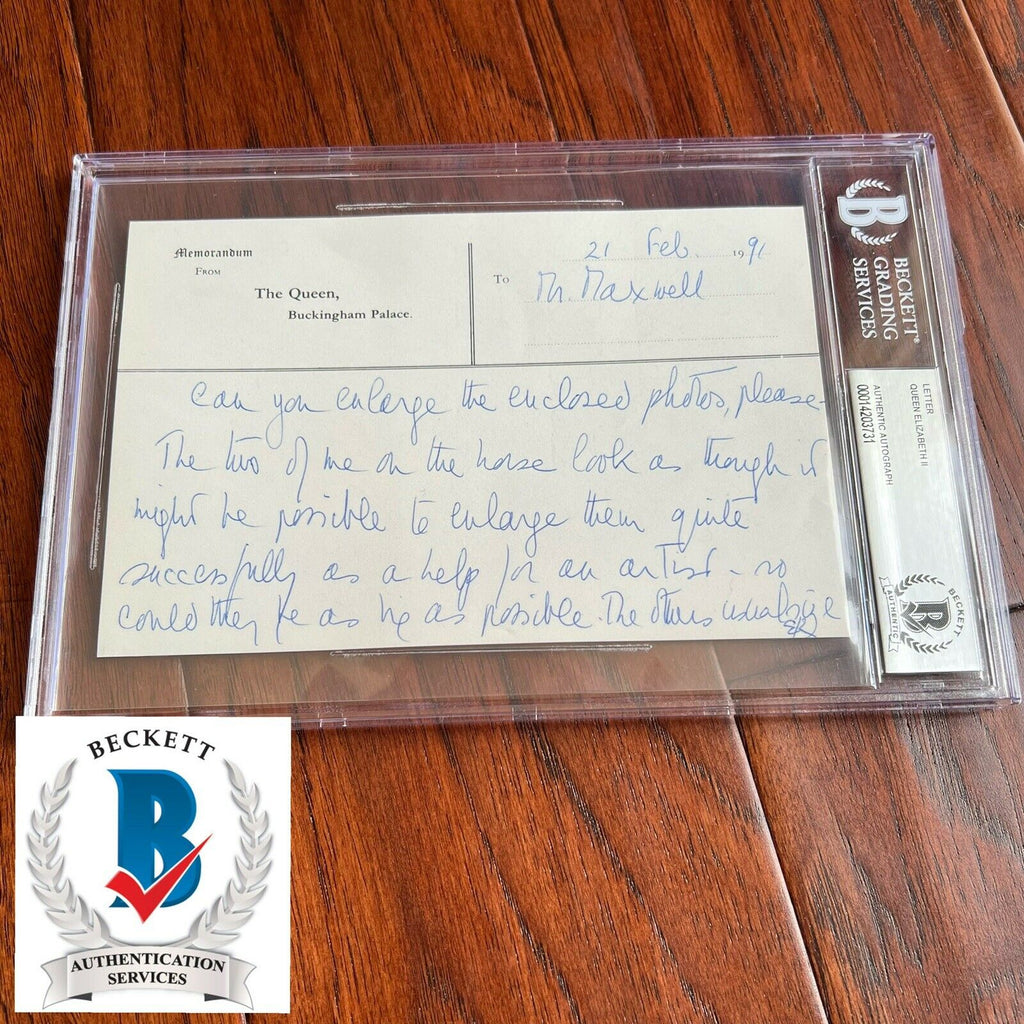 Memorandum
FROM
The Queen,
Buckingham Palace.
21 Feb. 1991
To Mr. Maxwell
Can you enlarge the enclosed photos, please -
The two of me on the horse look as though it
might be possible to enlarge them quite
successfully as a help for an artist - so
could they be as big as possible. The others usual size
ER
BECKETT®
GRADING
SERVICES
LETTER
QUEEN ELIZABETH II
AUTHENTIC AUTOGRAPH
00014203731
BECKETT
B
AUTHENTIC
BECKETT
B
AUTHENTICATION
SERVICES